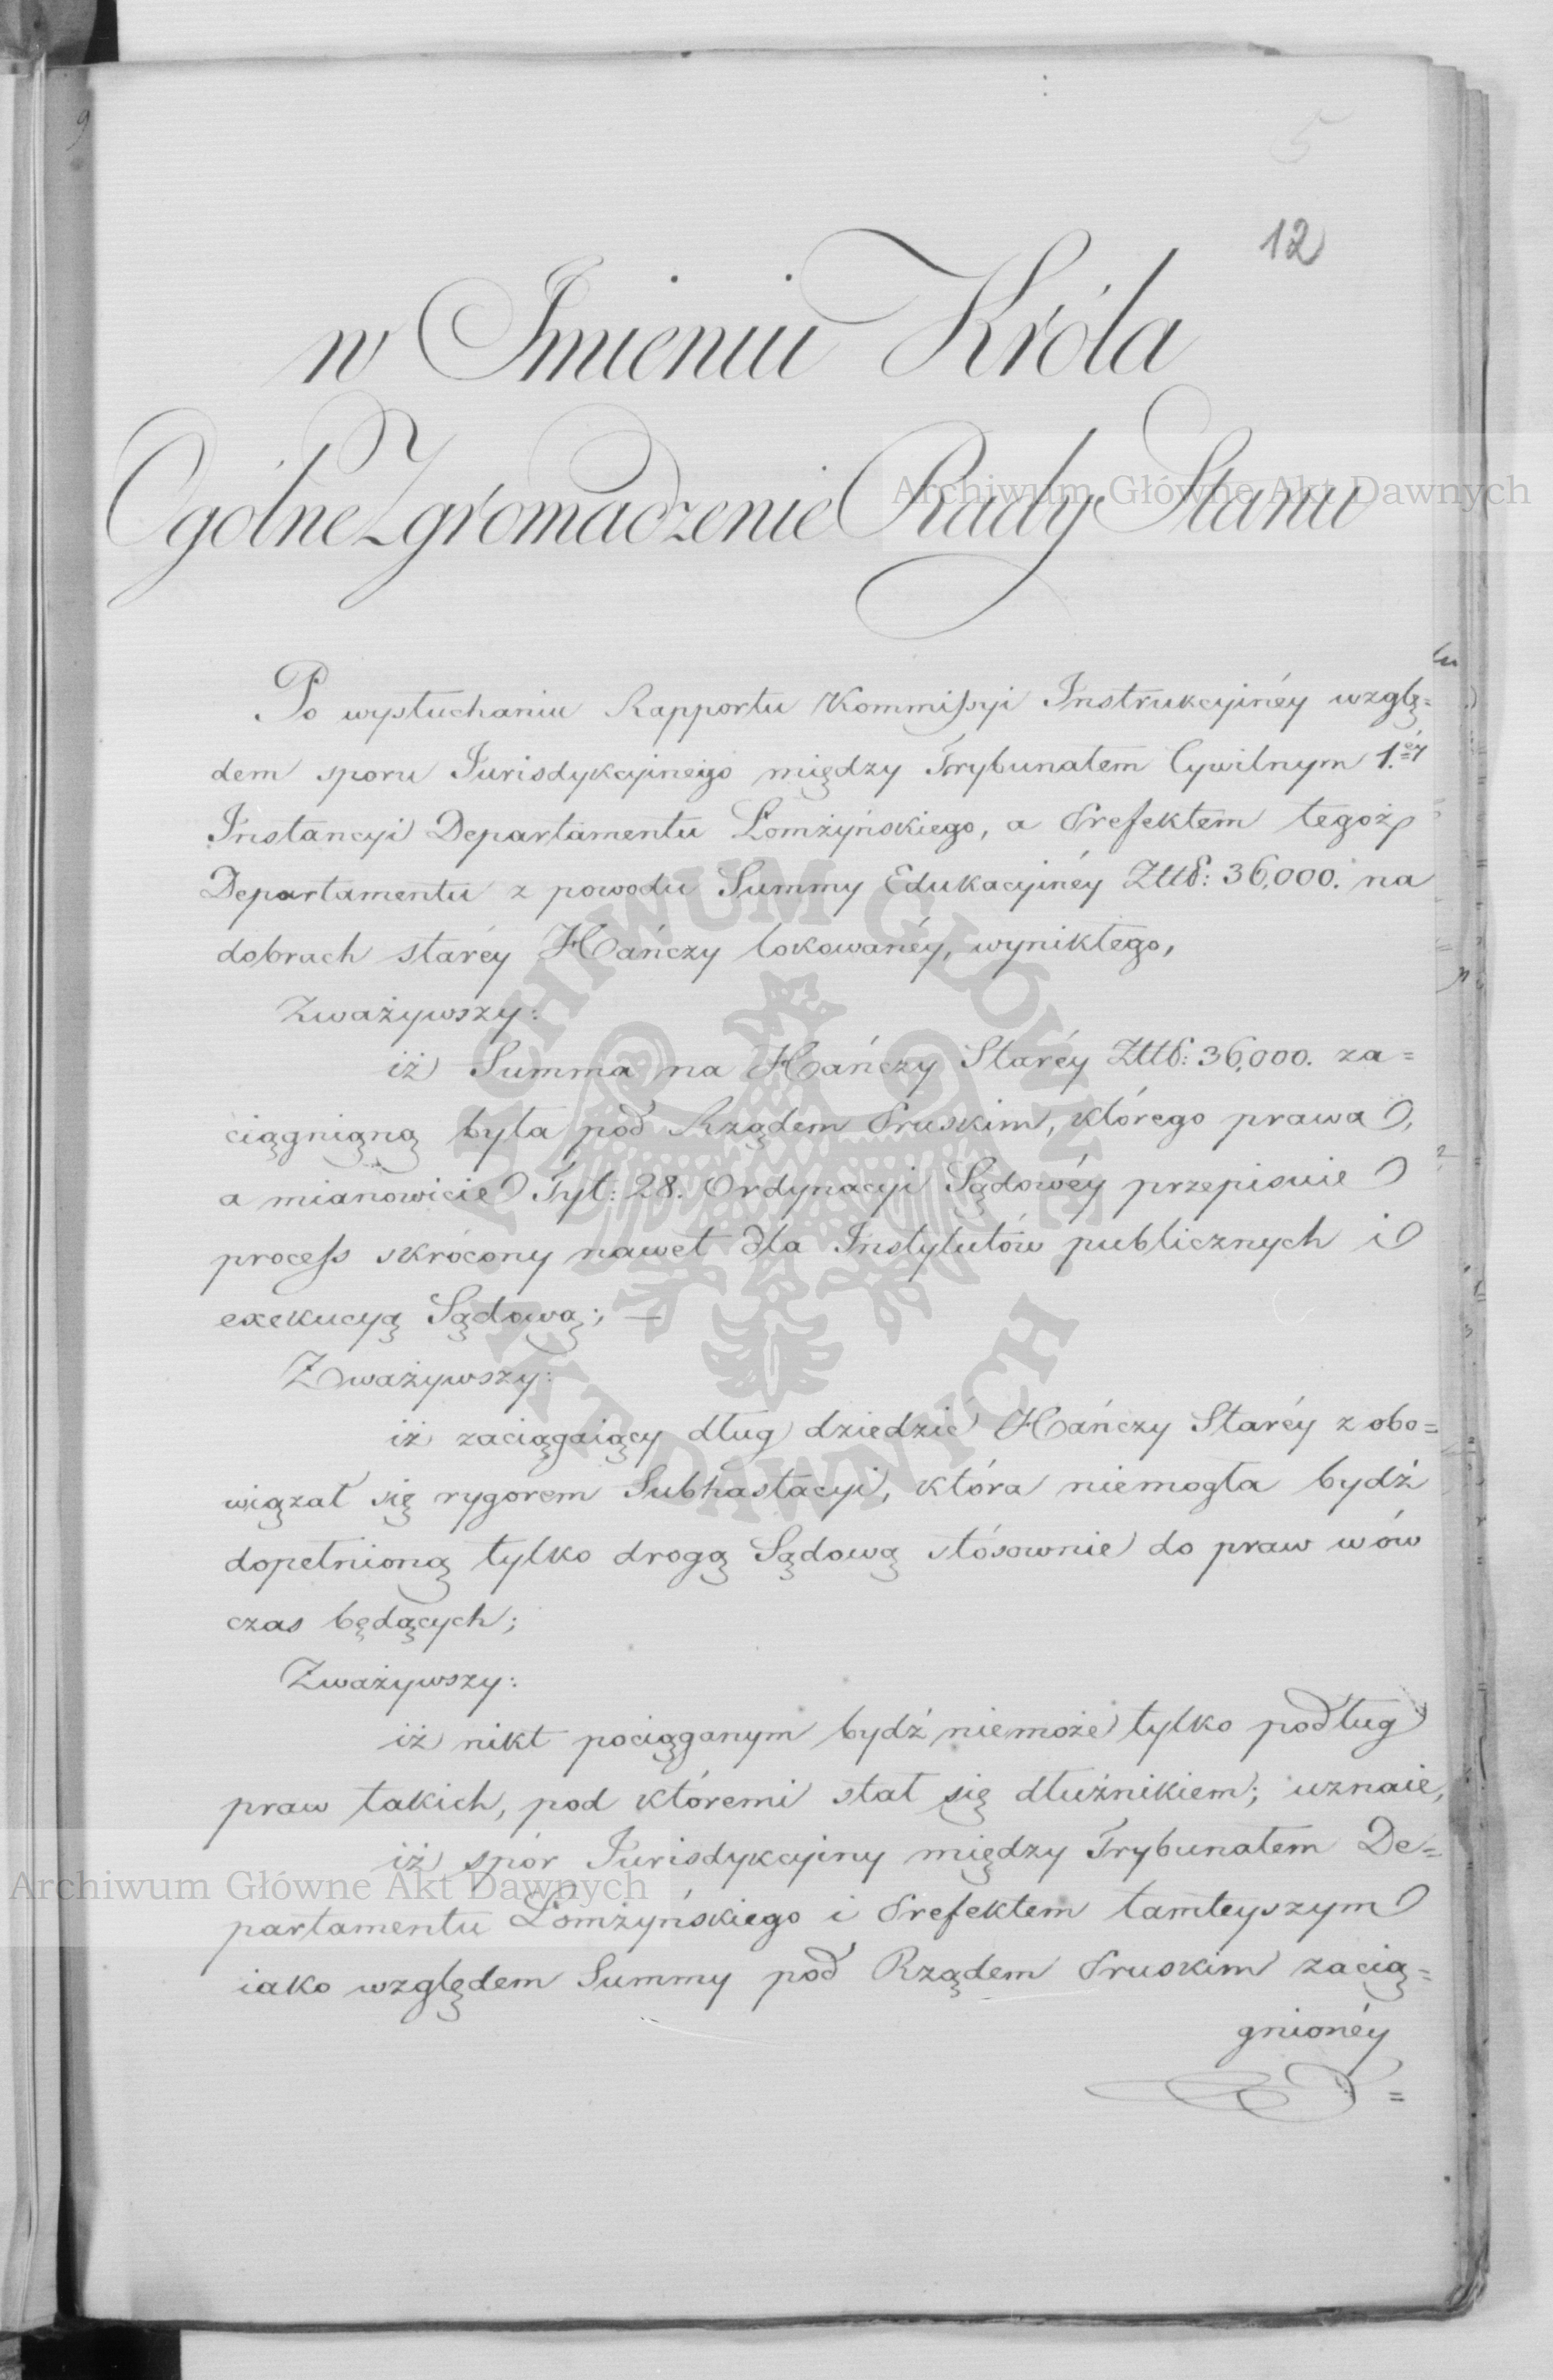 5
12
w Imieniu Króla
Ogólne Zgromadzenie Rady Stanu
Po wysłuchaniu Rapportu Kommissyi Instrukcyinéy wzglę=
dem sporu Jurisdykcyinego między Trybunałem Cywilnym 1.éy
Instancyi Departamentu Łomżyńskiego, a Prefektem tegoż
Departamentu z powodu Summy Edukacyinéy Złłł: 36,000. na
dobrach staréy Hańczy lokowanéy, wynikłego,
Zważywszy:
iż Summa na Hańczy Staréy Złłł: 36,000. za=
ciągnięną była pod Rządem Pruskim, którego prawa,
a mianowicie Tyt: 28. Ordynacyi Sądowéy przepisuie
process skrócony nawet dla Instytutów publicznych i
exekucyą Sądową; —
Zważywszy:
iż zaciągaiący dług dziedzic Hańczy Staréy z obo=
wiązał się rygorem Subhastacyi, która niemogła bydź
dopełnioną tylko drogą Sądową stósownie do praw wów
czas będących;
Zważywszy:
iż nikt pociąganym bydź niemoże tylko podług
praw takich, pod któremi stał się dłużnikiem; uznaie,
iż spór Jurisdykcyiny między Trybunałem De=
partamentu Łomżyńskiego i Prefektem tamteyszym
iako względem Summy pod Rządem Pruskim zacią=
gnionéy
Archiwum Główne Akt Dawnych
Archiwum Główne Akt Dawnych
ARCHIWUM GŁÓWNE AKT DAWNYCH